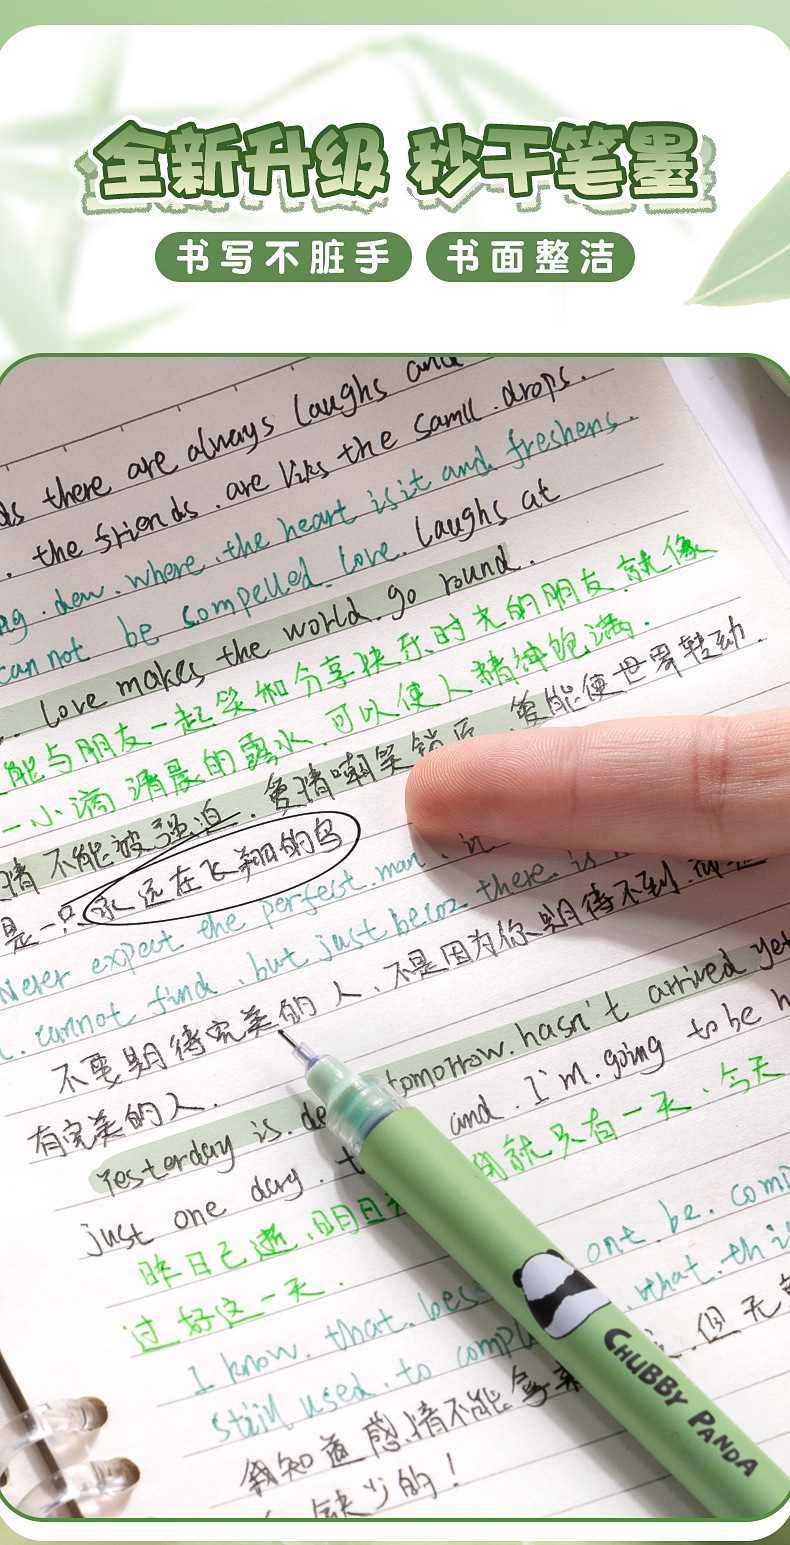 全新升级 秒干笔墨
书写不脏手 书面整洁
there are always laughs and
. the friends . are liks the samll . drops .
. dew . where . the heart is it and freshens .
can not be compelled . love . laughs at
. love makes the world . go round .
能与朋友一起笑和分享快乐时光的朋友,就像
一小滴清晨的露水,可以使人精神饱满.
情不能被强迫.爱情嘲笑锁匠,爱能使世界转动.
是一只永远在飞翔的鸟
Never expect the perfect . man .
. cannot find . but just becoz there is
不要期待完美的人、不是因为你期待不到.
有完美的人.
Yesterday is . tomorrow . hasn't arrived yet
just one day . and . I'm . going to be
昨日已逝,明日 就只有一天、今天
过好这一天.
I know . that . ont . be .
still used . to that . thi
我知道感情不能 ,但无
缺少的!
CHUBBY PANDA